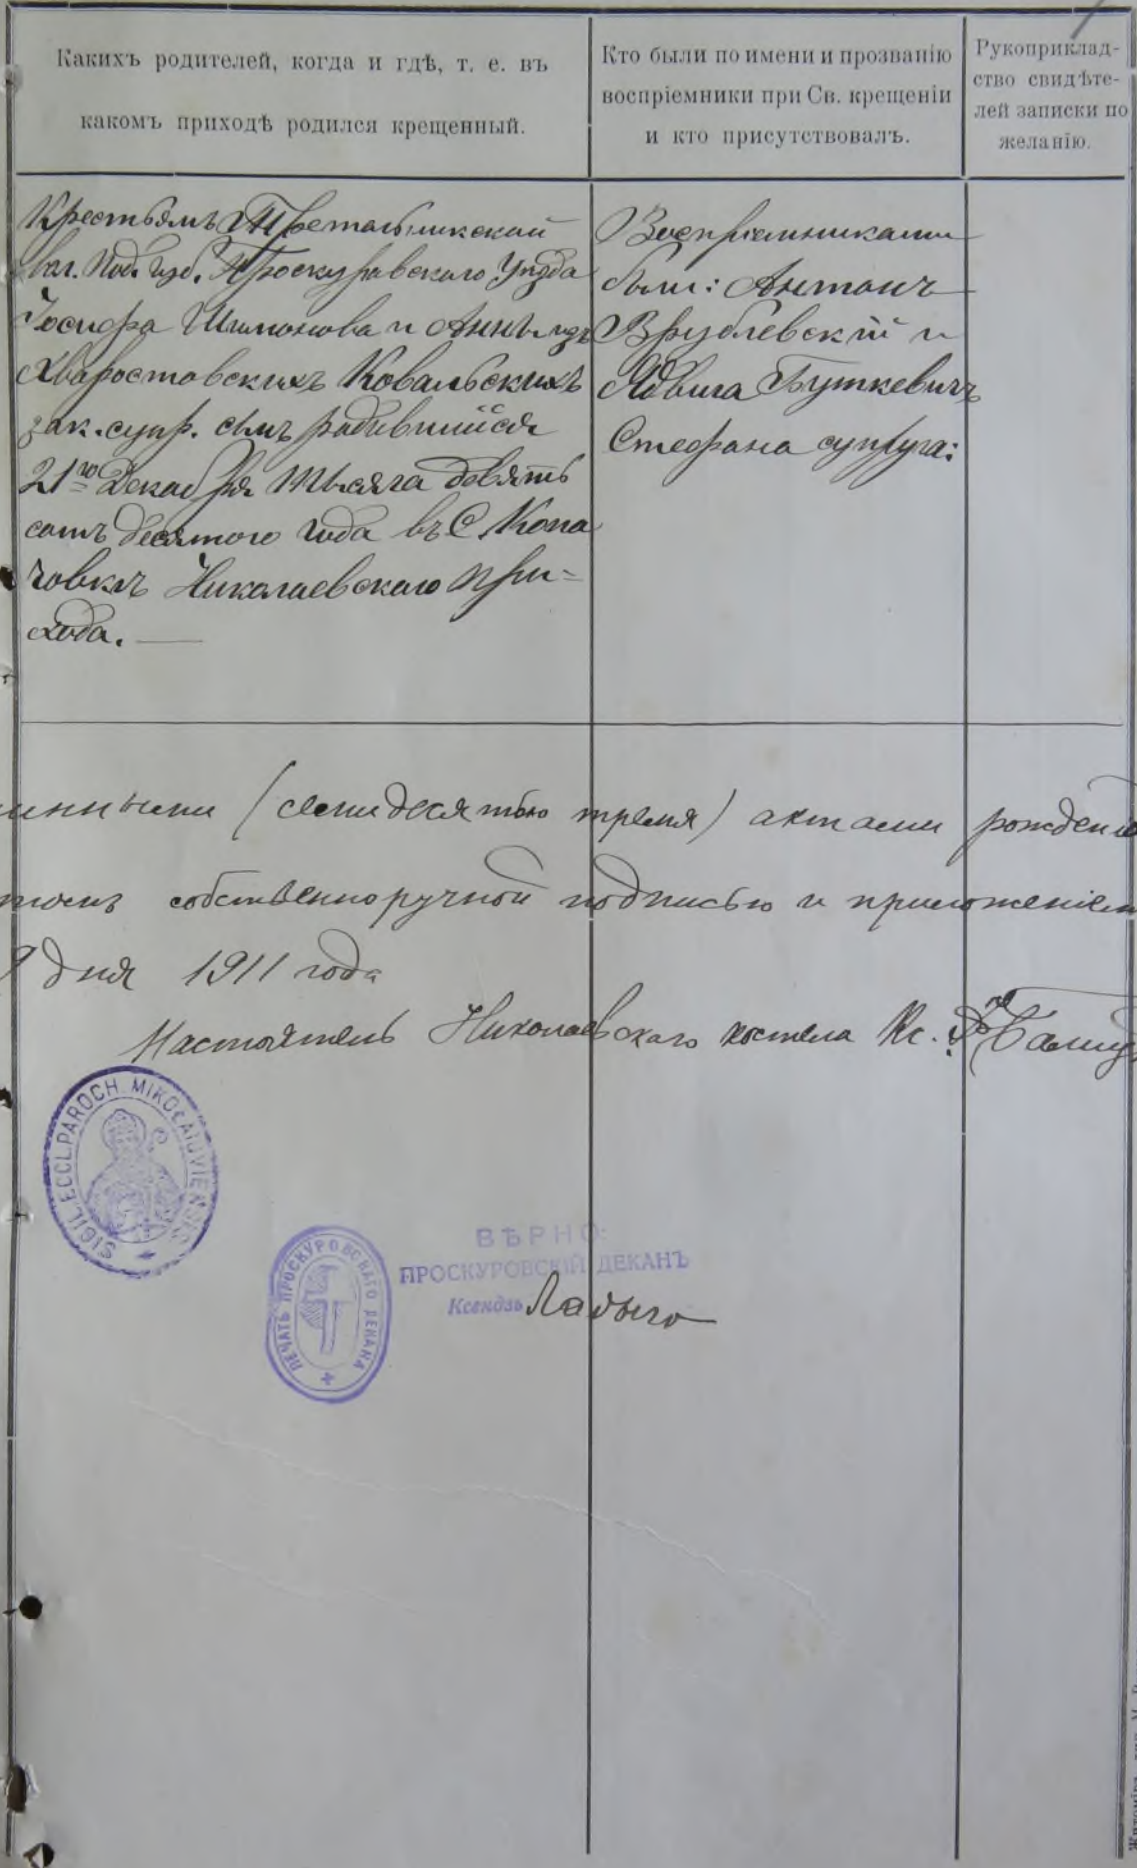 Какихъ родителей, когда и гдѣ, т. е. въ
какомъ приходѣ родился крещенный.
Кто были по имени и прозванію
воспріемники при Св. крещеніи
и кто присутствовалъ.
Рукоприклад-
ство свидѣте-
лей записки по
желанію.
Крестьянъ Третельникской
вол. Под. губ. Проскуровскаго Уѣзда
Іосифа Шимонова и Анны изъ
Хваростовскихъ Ковальскихъ
зак. супр. сынъ родившийся
21го Декабря тысяча девять
сотъ десятого года въ С. Копа
човкѣ Николаевскаго при=
хода.
Воспріемниками
были: Антонъ
Врублевскій и
Ядвига Буткевичъ
Стефана супруга:
(семидесятью тремя) актами рожденія
собственноручной подписью и приложеніем
дня 1911 года
Настоятель Николаевскаго костела Кс.
SIGIL. ECCL. PAROCH. MIKOŁAIOVIENSIS
ВѢРНО:
ПРОСКУРОВСКІЙ ДЕКАНЪ
Ксендзъ Ладыго
ПЕЧАТЬ ПРОСКУРОВСКАГО ДЕКАНА